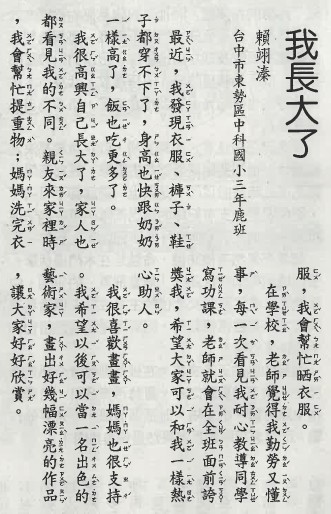 我長大了
台中市東勢區中科國小三年鹿班
賴翊溱
最近，我發現衣服、褲子、鞋
子都穿不下了，身高也快跟奶奶
一樣高了，飯也吃更多了。
我很高興自己長大了，家人也
都看見我的不同。親友來家裡時
，我會幫忙提重物；媽媽洗完衣
服，我會幫忙晒衣服。
在學校，老師覺得我勤勞又懂
事，每一次看見我耐心教導同學
寫功課，老師就會在全班面前誇
獎我，希望大家可以和我一樣熱
心助人。
我很喜歡畫畫，媽媽也很支持
。我希望以後可以當一名出色的
藝術家，畫出好幾幅漂亮的作品
，讓大家好好欣賞。